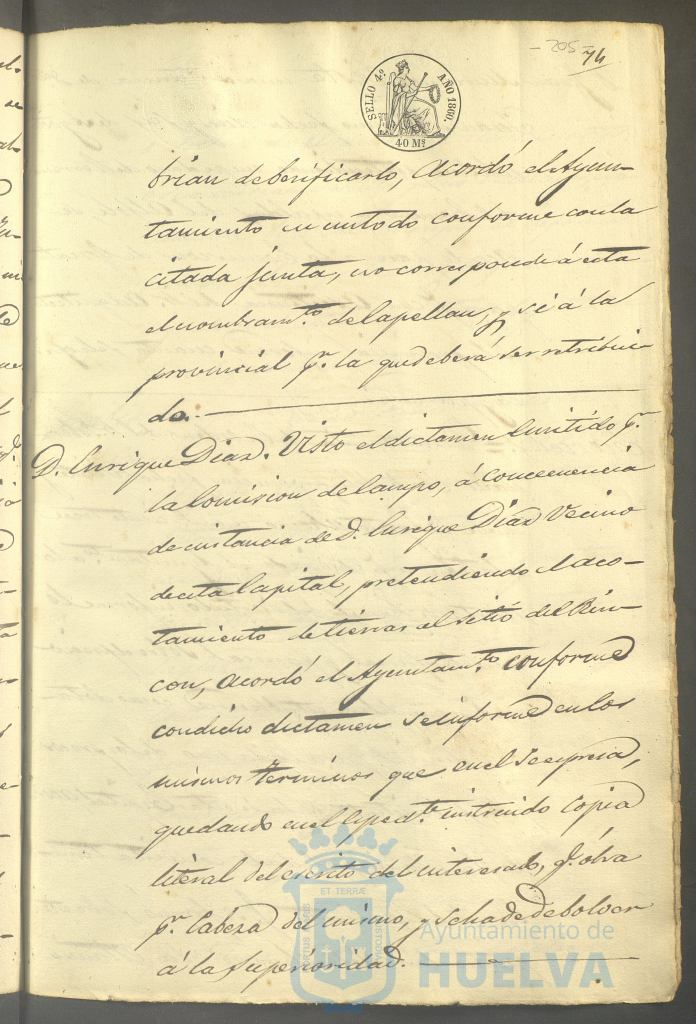 - 205 -
74
SELLO 4º AÑO 1860.
40 Mˢ
brian deberificarlo, Acordó el Ayun-
tamiento en un todo conforme con la
citada junta, no corresponde á esta
el nombramᵗᵒ. de Capellan, y si á la
provincial pʳ. la que deberá ser retribui-
do.
D. Enrique Diaz. Visto el dictamen emitido pʳ.
la Comision de Campo, á consecuencia
de instancia de D. Enrique Diaz Vecino
de esta Capital, pretendiendo el aco-
tamiento de tierras al sitio del Rin-
con, acordó el Ayuntamᵗᵒ. conforme
con dicho dictamen se informe en los
mismos terminos que en el se expresa,
quedando en el Expedᵗᵉ. instruido Copia
literal del escrito del interesado, qᵉ. obra
pʳ. Cabeza del mismo, y se ha de debolver
á la Superioridad.
ET TERRÆ
Ayuntamiento de
HUELVA